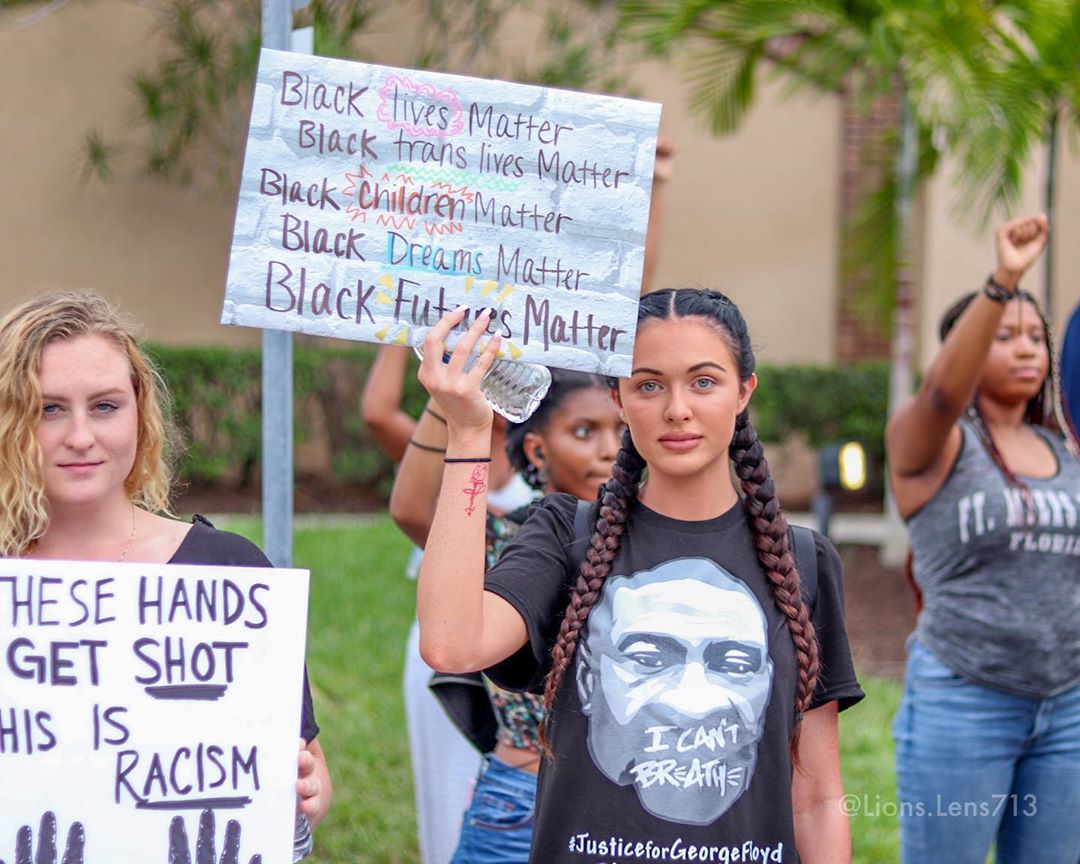 Black lives Matter
Black trans lives Matter
Black Children Matter
Black Dreams Matter
Black Futures Matter
THESE HANDS
GET SHOT
THIS IS
RACISM
I CAN'T
BREATHE
#JusticeforGeorgeFloyd
FT. MYERS
FLORIDA
@Lions.Lens713